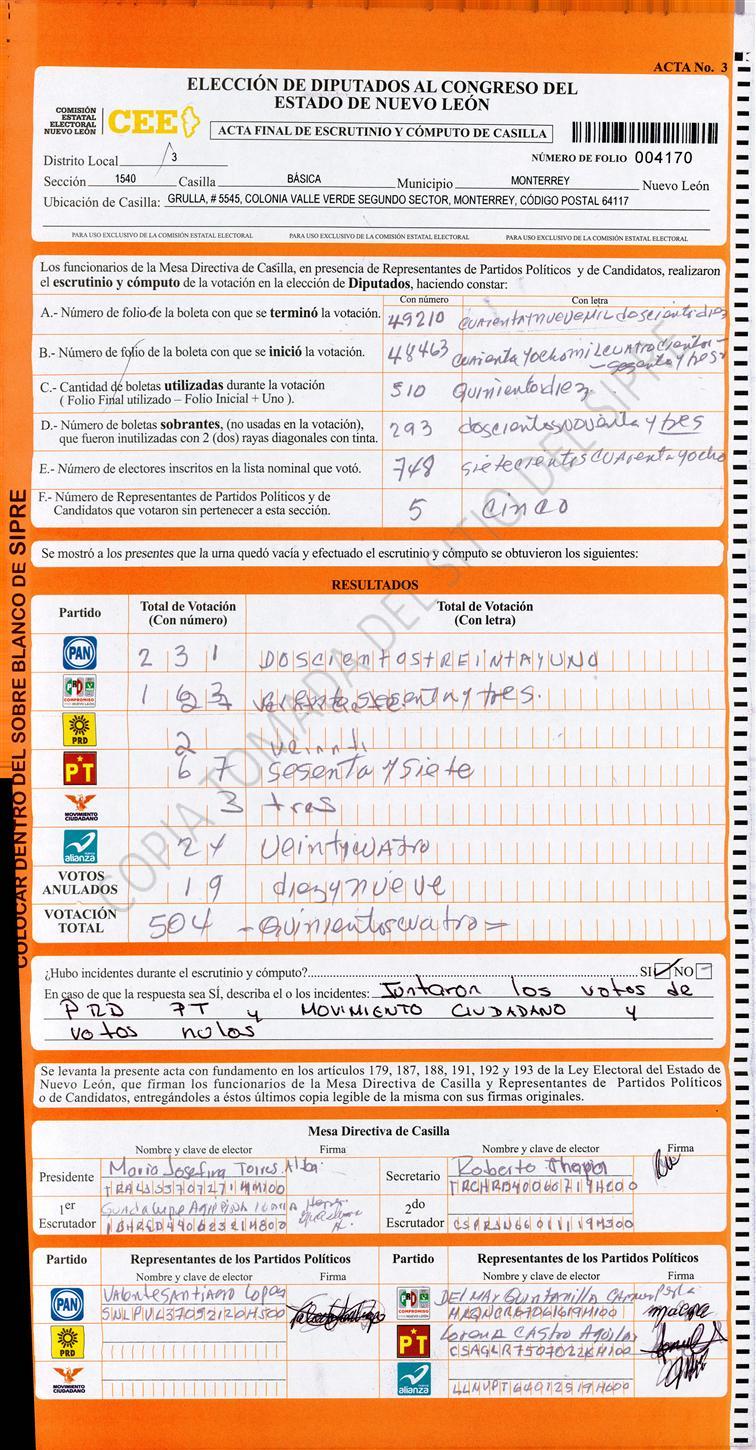 ACTA No. 3
ELECCIÓN DE DIPUTADOS AL CONGRESO DEL
ESTADO DE NUEVO LEÓN
COMISIÓN
ESTATAL
ELECTORAL
NUEVO LEÓN
CEE
ACTA FINAL DE ESCRUTINIO Y CÓMPUTO DE CASILLA
Distrito Local 3
NÚMERO DE FOLIO 004170
Sección 1540 Casilla BÁSICA Municipio MONTERREY Nuevo León
Ubicación de Casilla: GRULLA, # 5545, COLONIA VALLE VERDE SEGUNDO SECTOR, MONTERREY, CÓDIGO POSTAL 64117
PARA USO EXCLUSIVO DE LA COMISIÓN ESTATAL ELECTORAL PARA USO EXCLUSIVO DE LA COMISIÓN ESTATAL ELECTORAL PARA USO EXCLUSIVO DE LA COMISIÓN ESTATAL ELECTORAL
Los funcionarios de la Mesa Directiva de Casilla, en presencia de Representantes de Partidos Políticos y de Candidatos, realizaron
el escrutinio y cómputo de la votación en la elección de Diputados, haciendo constar:
Con número Con letra
A.- Número de folio de la boleta con que se terminó la votación. 49210 cuarentaynueve mil doscientos diez
B.- Número de folio de la boleta con que se inició la votación. 48463 cuarenta yocho mil cuatrocientos
sesenta y tres
C.- Cantidad de boletas utilizadas durante la votación
( Folio Final utilizado – Folio Inicial + Uno ). 510 quinientodiez
D.- Número de boletas sobrantes, (no usadas en la votación),
que fueron inutilizadas con 2 (dos) rayas diagonales con tinta. 293 doscientosnoventa y tres
E.- Número de electores inscritos en la lista nominal que votó. 748 sietecientos cuarenta yocho
F.- Número de Representantes de Partidos Políticos y de
Candidatos que votaron sin pertenecer a esta sección. 5 cinco
Se mostró a los presentes que la urna quedó vacía y efectuado el escrutinio y cómputo se obtuvieron los siguientes:
RESULTADOS
Partido Total de Votación Total de Votación
(Con número) (Con letra)
PAN 231 DOSCIENTOSTREINTAYUNO
PRD COMPROMISO 1 6 sesenta y tres.
PRD 2
PT 67 sesenta y siete
MOVIMIENTO CIUDADANO 3 tres
alianza 24 veinticuatro
VOTOS
ANULADOS 19 diezynueve
VOTACIÓN
TOTAL 504 - Quinientoscuatro =
¿Hubo incidentes durante el escrutinio y cómputo? SI NO
En caso de que la respuesta sea SÍ, describa el o los incidentes: Juntaron los votos de
PRD PT y MOVIMIENTO CIUDADANO y
votos nulos
Se levanta la presente acta con fundamento en los artículos 179, 187, 188, 191, 192 y 193 de la Ley Electoral del Estado de
Nuevo León, que firman los funcionarios de la Mesa Directiva de Casilla y Representantes de Partidos Políticos
o de Candidatos, entregándoles a éstos últimos copia legible de la misma con sus firmas originales.
Mesa Directiva de Casilla
Nombre y clave de elector Firma Nombre y clave de elector Firma
Presidente Maria Josefina Torres Alba
Secretario Roberto
1er
Escrutador Guadalupe
2do
Escrutador
Partido Representantes de los Partidos Políticos Partido Representantes de los Partidos Políticos
Nombre y clave de elector Firma Nombre y clave de elector Firma
PAN Lopez
COMPROMISO Quintanilla
PRD
PT Lorena Castro Aguilar
MOVIMIENTO CIUDADANO
alianza
COLOCAR DENTRO DEL SOBRE BLANCO DE SIPRE
COPIA TOMADA DEL SITIO DEL SIPRE